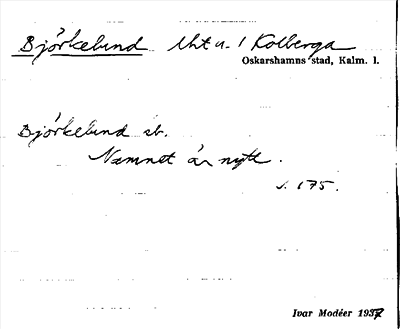 Björkelund lht u. 1 Kolberga
Oskarshamns stad, Kalm. l.
Björkelund sb.
Namnet är nytt.
s. 175.
Ivar Modéer 1937